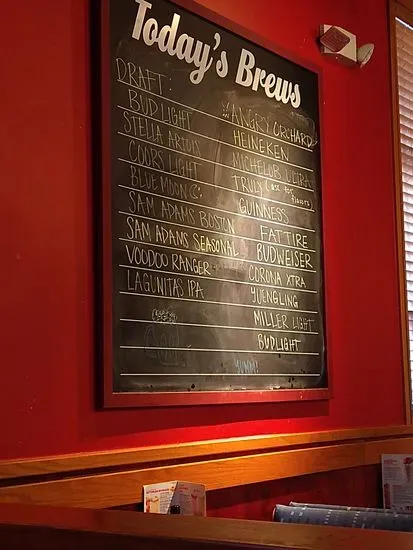 Today's Brews
DRAFT:
BUD LIGHT
STELLA ARTOIS
COORS LIGHT
BLUE MOON
SAM ADAMS BOSTON
SAM ADAMS SEASONAL
VOODOO RANGER
LAGUNITAS IPA
ANGRY ORCHARD
HEINEKEN
MICHELOB ULTRA
TRULY (ASK FOR FLAVORS)
GUINNESS
FAT TIRE
BUDWEISER
CORONA XTRA
YUENGLING
MILLER LIGHT
BUDLIGHT
YUMM!